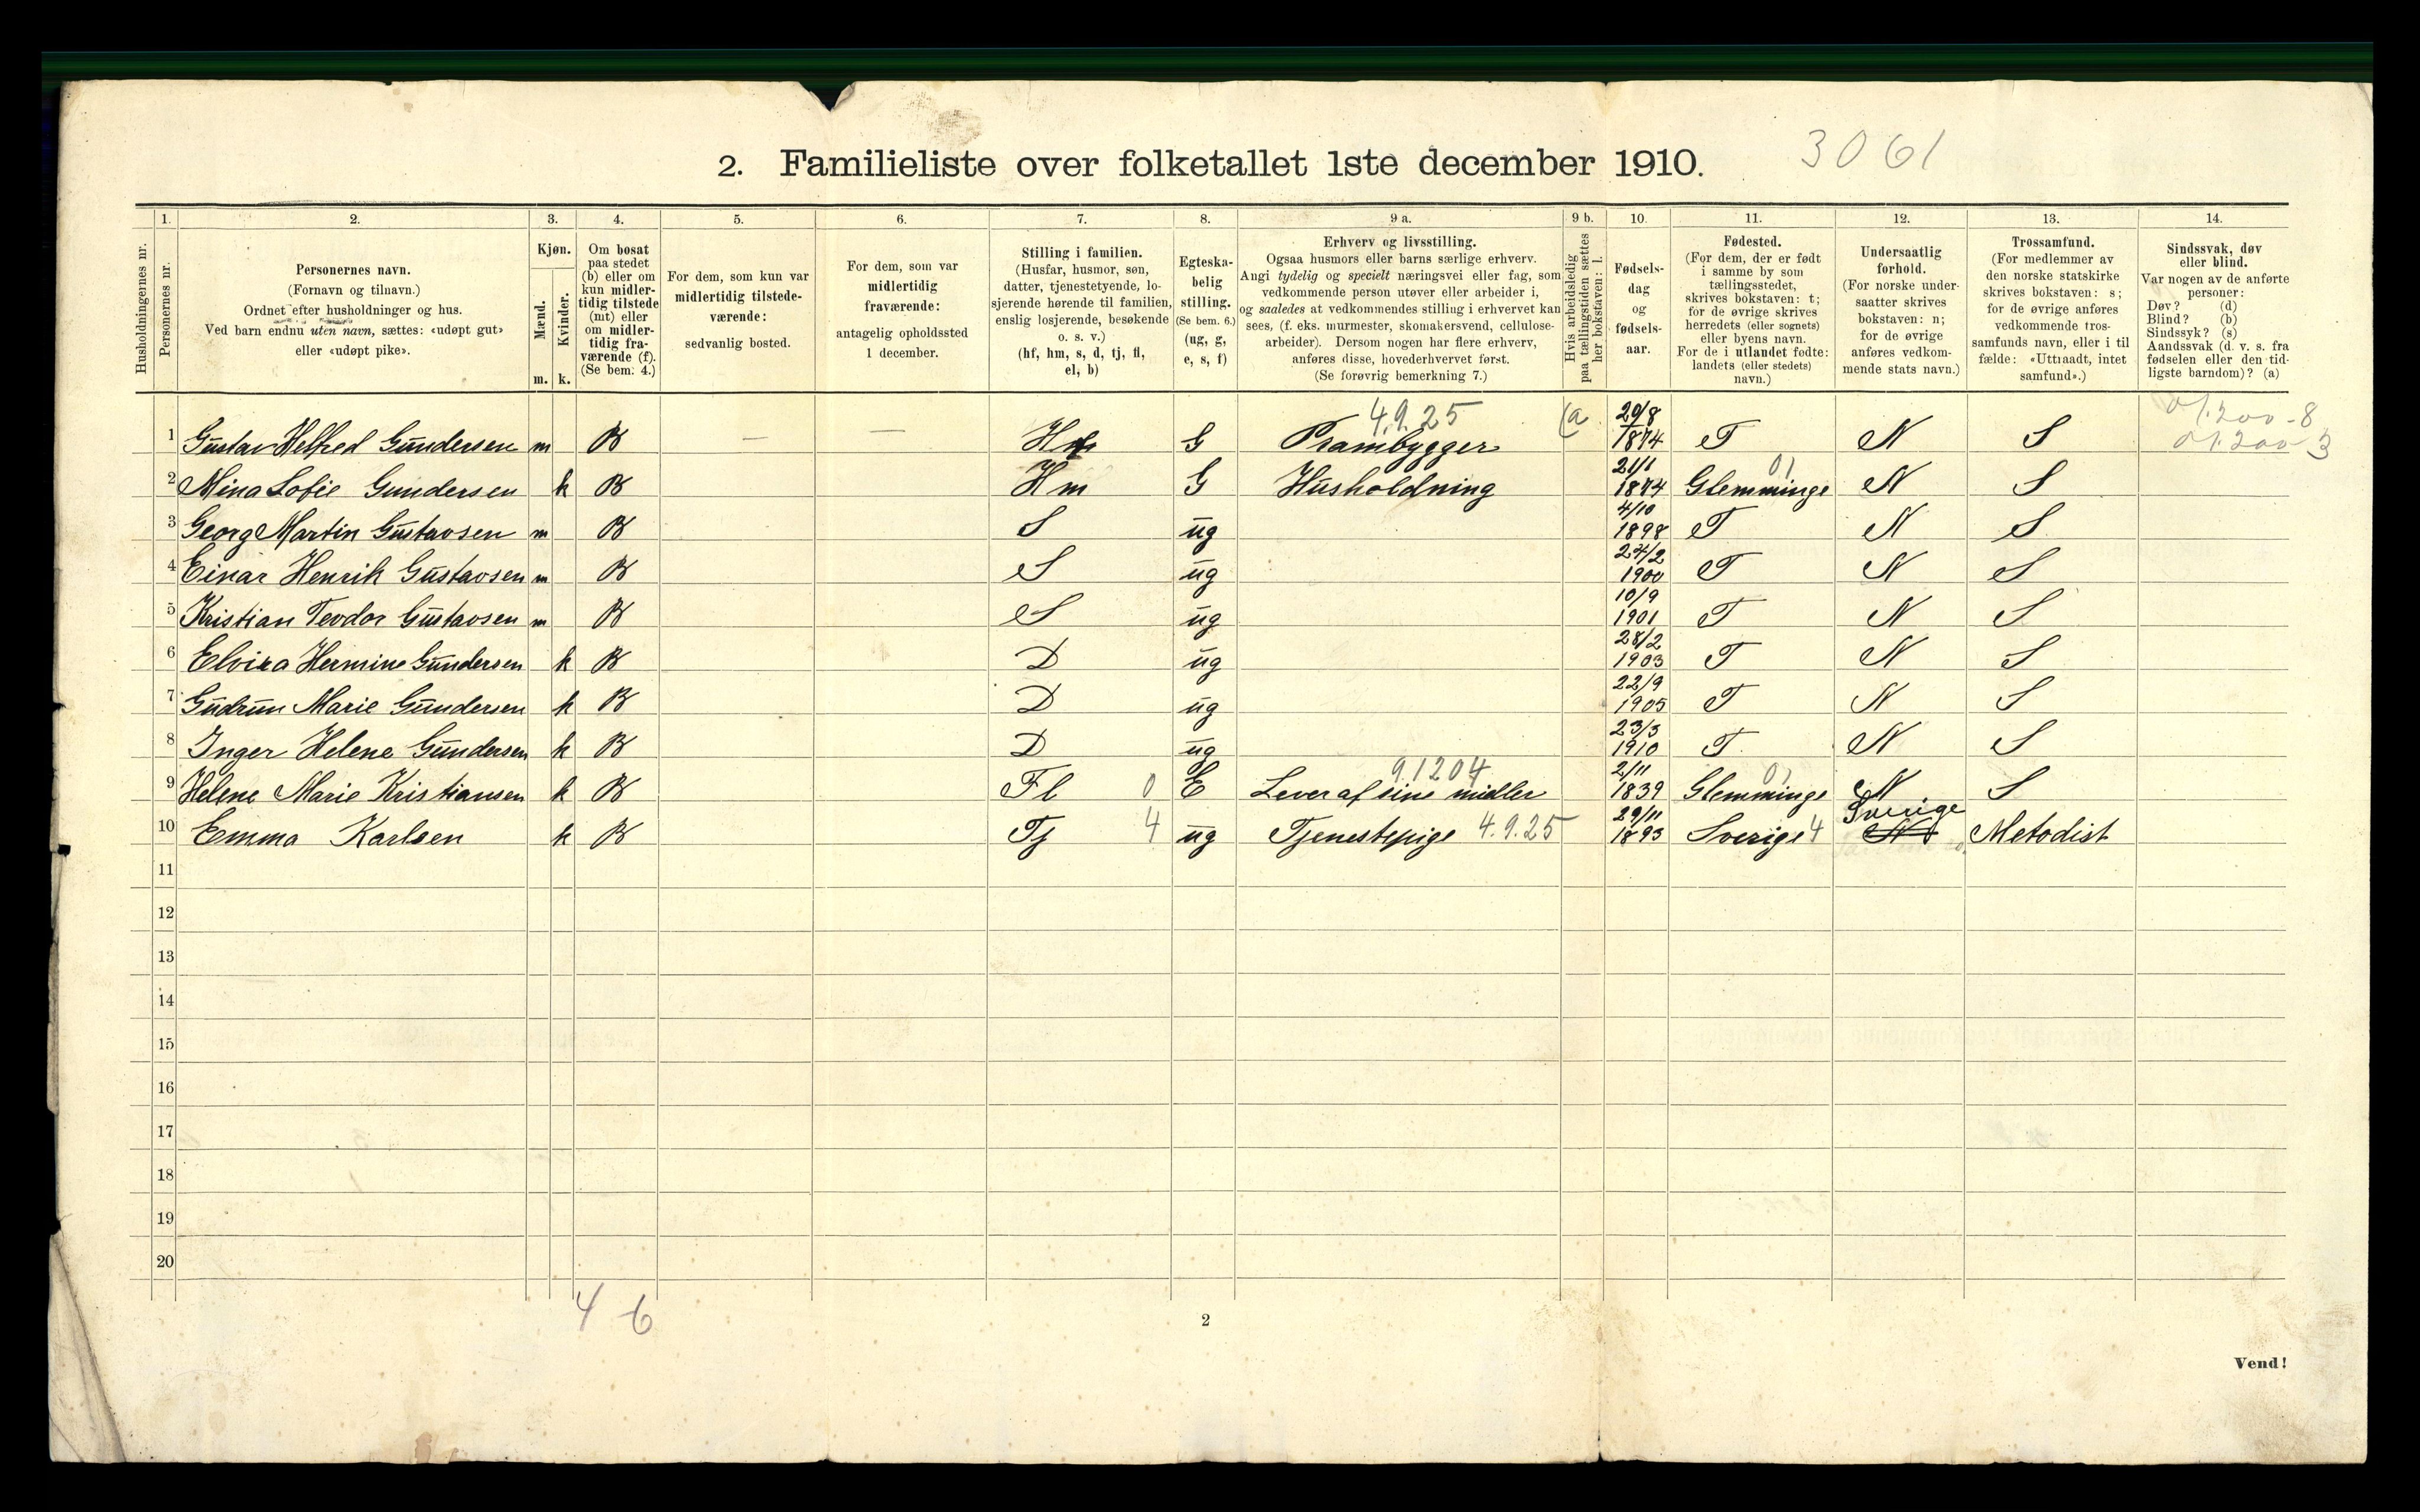 2. Familieliste over folketallet 1ste december 1910. 3061
1. 2. 3. 4. 5. 6. 7. 8. 9 a. 9 b. 10. 11. 12. 13. 14.
Husholdningernes nr.
Personernes nr.
Personernes navn.
(Fornavn og tilnavn.)
Ordnet efter husholdninger og hus.
Ved barn endnu uten navn, sættes: «udøpt gut»
eller «udøpt pike».
Kjøn.
Mænd.
m.
Kvinder.
k.
Om bosat
paa stedet
(b) eller om
kun midler-
tidig tilstede
(mt) eller
om midler-
tidig fra-
værende (f).
(Se bem. 4.)
For dem, som kun var
midlertidig tilstede-
værende:
sedvanlig bosted.
For dem, som var
midlertidig
fraværende:
antagelig opholdssted
1 december.
Stilling i familien.
(Husfar, husmor, søn,
datter, tjenestetyende, lo-
sjerende hørende til familien,
enslig losjerende, besøkende
o. s. v.)
(hf, hm, s, d, tj, fl,
el, b)
Egteska-
belig
stilling.
(Se bem. 6.)
(ug, g,
e, s, f)
Erhverv og livsstilling.
Ogsaa husmors eller barns særlige erhverv.
Angi tydelig og specielt næringsvei eller fag, som
vedkommende person utøver eller arbeider i,
og saaledes at vedkommendes stilling i erhvervet kan
sees, (f. eks. murmester, skomakersvend, cellulose-
arbeider). Dersom nogen har flere erhverv,
anføres disse, hovederhvervet først.
(Se forøvrig bemerkning 7.)
Hvis arbeidsledig
paa tællingstiden sættes
her bokstaven: l.
Fødsels-
dag
og
fødsels-
aar.
Fødested.
(For dem, der er født
i samme by som
tællingsstedet,
skrives bokstaven: t;
for de øvrige skrives
herredets (eller sognets)
eller byens navn.
For de i utlandet fødte:
landets (eller stedets)
navn.)
Undersaatlig
forhold.
(For norske under-
saatter skrives
bokstaven: n;
for de øvrige
anføres vedkom-
mende stats navn.)
Trossamfund.
(For medlemmer av
den norske statskirke
skrives bokstaven: s;
for de øvrige anføres
vedkommende tros-
samfunds navn, eller i til
fælde: «Uttraadt, intet
samfund».)
Sindssvak, døv
eller blind.
Var nogen av de anførte
personer:
Døv? (d)
Blind? (b)
Sindssyk? (s)
Aandssvak (d. v. s. fra
fødselen eller den tid-
ligste barndom)? (a)
4.9.25 01.200-8
1 Gustav Helfred Gundersen m B — — Hf G Prambygger (a 20/8 1874 T N S 01.200-3
2 Mina Sofie Gundersen k B Hm G Husholdning 21/1 1874 Glemminge 01 N S
3 Georg Martin Gustavsen m B S ug 4/10 1898 T N S
4 Einar Henrik Gustavsen m B S ug 24/2 1900 T N S
5 Kristian Teodor Gustavsen m B S ug 10/9 1901 T N S
6 Elvira Hermine Gundersen k B D ug 28/2 1903 T N S
7 Gudrun Marie Gundersen k B D ug 22/9 1905 T N S
8 Inger Helene Gundersen k B D ug 23/3 1910 T N S
9.1204
9 Helene Marie Kristiansen k B Fl 0 E Lever af sine midler 2/11 1839 Glemminge 01 N S
10 Emma Karlsen k B Tj 4 ug Tjenestepige 4.9.25 29/11 1893 Sverige 4 Sverige N Metodist
11
12
13
14
15
16
17
18
19
20
4 6
2
Vend!